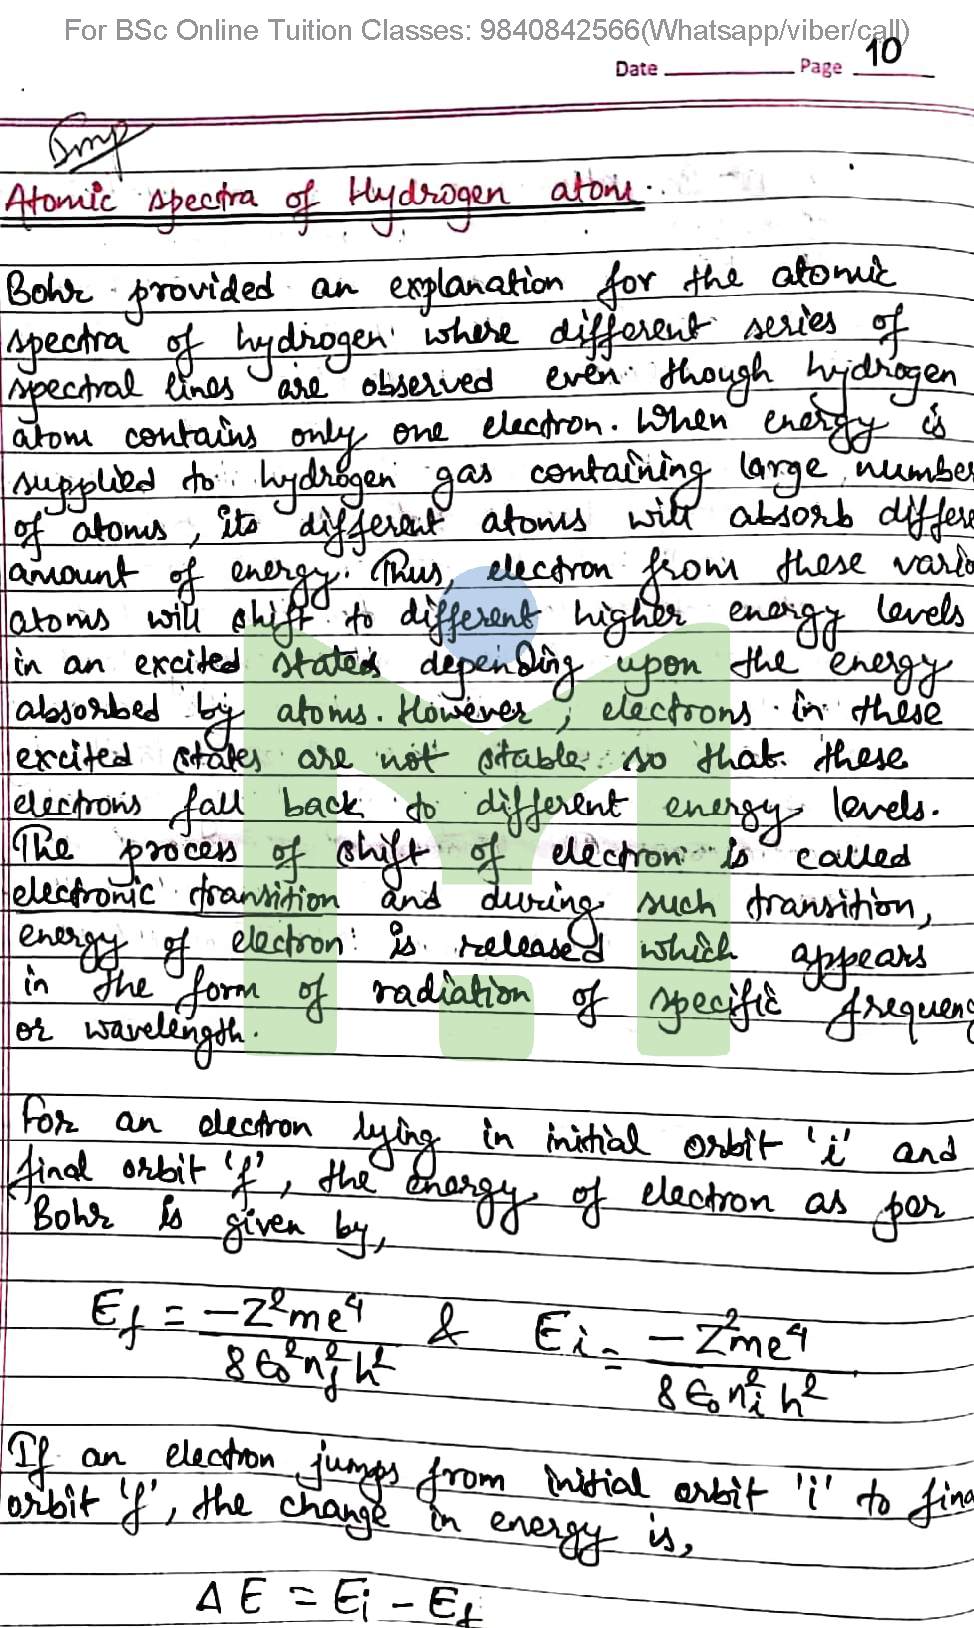 For BSc Online Tuition Classes: 9840842566(Whatsapp/viber/call)
Date Page 10
Imp
Atomic spectra of Hydrogen atom.
Bohr provided an explanation for the atomic
spectra of hydrogen where different series of
spectral lines are observed even though hydrogen
atom contains only one electron. When energy is
supplied to hydrogen gas containing large number
of atoms, its different atoms will absorb differe
amount of energy. Thus, electron from these vario
atoms will shift to different higher energy levels
in an excited states depending upon the energy
absorbed by atoms. However, electrons in these
excited states are not stable so that these
electrons fall back to different energy levels.
The process of shift of electron is called
electronic transition and during such transition,
energy of electron is released which appears
in the form of radiation of specific frequenc
or wavelength.
For an electron lying in initial orbit 'i' and
final orbit 'f', the energy of electron as per
Bohr is given by,
E_f = -Z²me⁴ / 8ϵ₀²n_f²h² & E_i = -Z²me⁴ / 8ϵ₀n_i²h²
If an electron jumps from initial orbit 'i' to fina
orbit 'f', the change in energy is,
ΔE = E_i - E_f